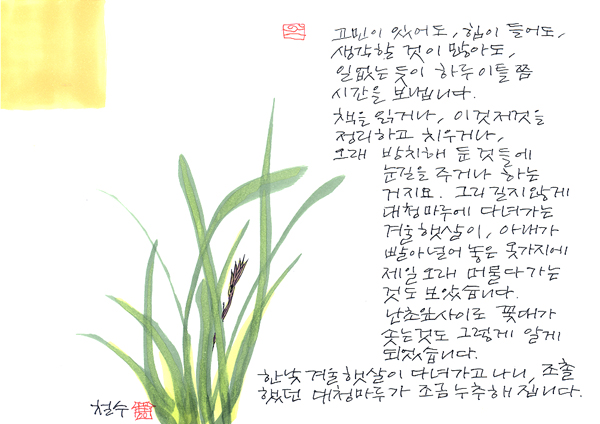 고민이 있어도, 힘이 들어도,
생각할 것이 많아도,
일없는 듯이 하루이틀쯤
시간을 보냅니다.
책을 읽거나, 이것저것을
정리하고 치우거나,
오래 방치해 둔 것들에
눈길을 주거나 하는
거지요. 그리 길지않게
대청마루에 다녀가는
겨울햇살이, 아내가
빨아널어 놓은 옷가지에
제일 오래 머물다가는
것도 보았습니다.
난초잎사이로 꽃대가
솟는것도 그렇게 알게
되었습니다.
한낮 겨울햇살이 다녀가고나니, 조촐
했던 대청마루가 조금 누추해집니다.
철수